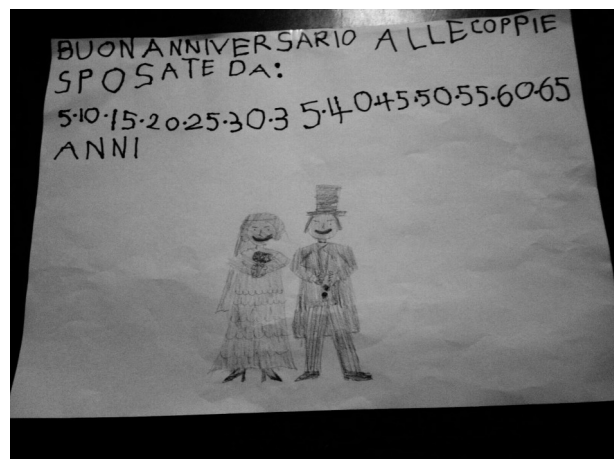 BUON ANNIVERSARIO ALLE COPPIE
SPOSATE DA:
5·10·15·20·25·30·35·40·45·50·55·60·65
ANNI